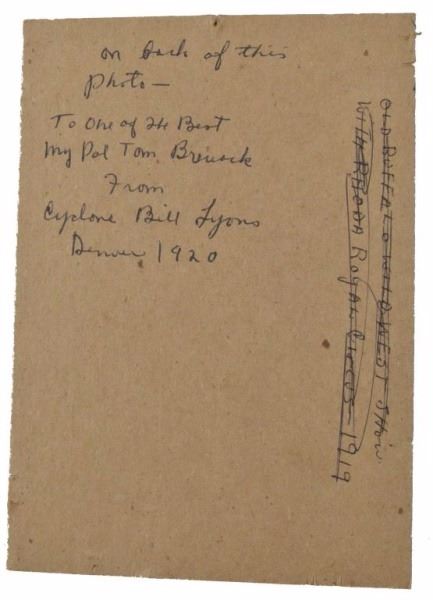 on back of this
photo—
To One of the Best
My Pal Tom
From
Cyclone Bill Lyons
Denver 1920
OLD BUFFALO WILD WEST SHOW
WITH RHODA ROYAL CIRCUS—1919